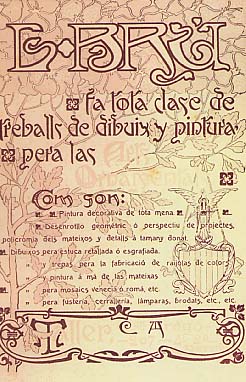 E·BRÚ
fa tota clase de
treballs de dibuix y pintura
pera las
Com son:
Pintura decorativa de tota mena.
Desenrotllo geométric ó perspectiu de projectes,
policromía dels mateixos y detalls á tamany donat.
Dibuixos pera estuca retallada ó esgrafiada.
" trepas pera la fabricació de rajolas de colors
" pintura á má de las mateixas
" pera mosaics venecià ó romá, etc.
" pera fustería, cerrallería, lámparas, brodats, etc., etc.
T C A